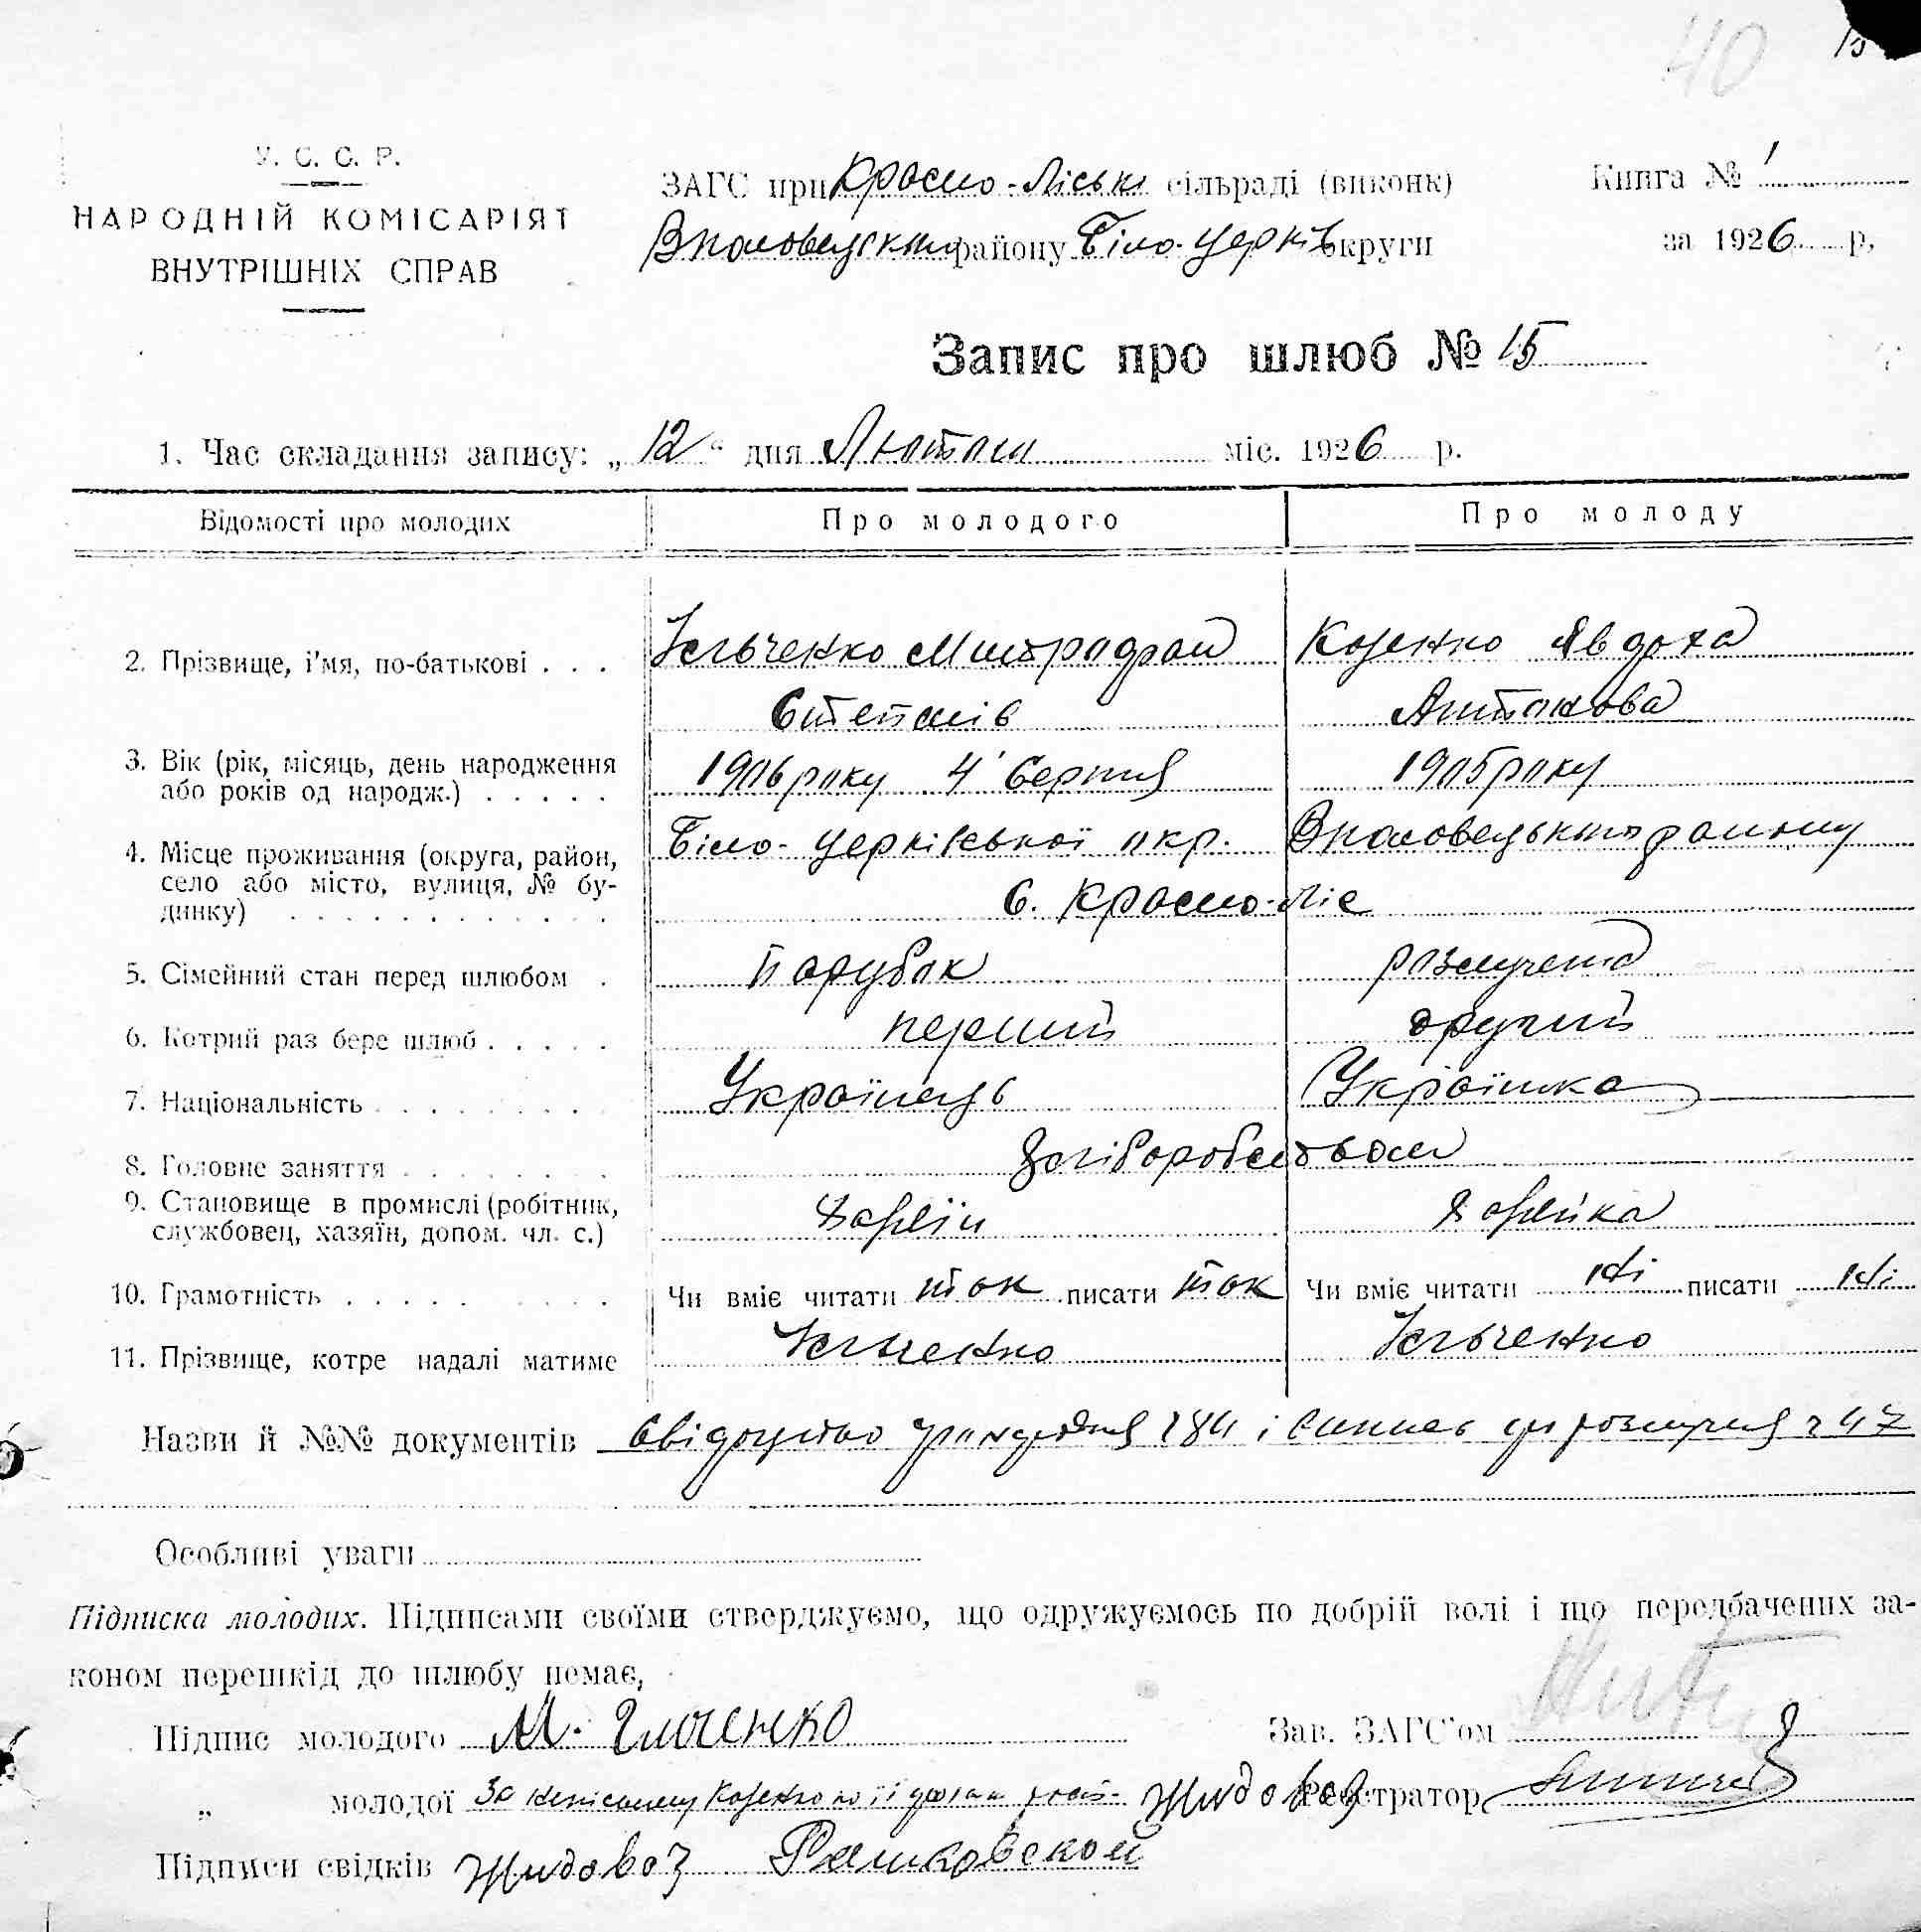 40
15
У. С. С. Р.
НАРОДНІЙ КОМІСАРІЯТ
ВНУТРІШНІХ СПРАВ
ЗАГС при Красно-Ліські сільраді (виконк)
району Біло-Церків округи
Книга № 1
за 1926 р,
Запис про шлюб № 15
1. Час складання запису: „12“ дня Лютого міс. 1926 р.
Відомості про молодих
Про молодого
Про молоду
2. Прізвище, і'мя, по-батькові . . .
Ільченко Митрофан
Степанів
Козенко Явдоха
Антонова
3. Вік (рік, місяць, день народження
або років од народж.) . . . . .
1906 року 4 Серпня
1905 року
4. Місце проживання (округа, район,
село або місто, вулиця, № бу-
динку) . . . . . . . . . . . .
Біло-Церківської окр.
району
с. Красно-Ліс
5. Сімейний стан перед шлюбом .
Парубок
розлучена
6. Котрий раз бере шлюб . . . . .
перший
другий
7. Національність . . . . . . . .
Українець
Українка
8. Головне заняття . . . . . . .
9. Становище в промислі (робітник,
службовец, хазяїн, допом. чл. с.)
Хазяїн
Хазяйка
10. Грамотність . . . . . . . . . .
Чи вміє читати так писати так
Чи вміє читати ні писати ні
11. Прізвище, котре надалі матиме
Ільченко
Ільченко
Назви й №№ документів Свідоцтво і 47
Особливі уваги
Підписка молодих. Підписами своїми стверджуємо, що одружуємось по добрій волі і що передбачених за-
коном перешкід до шлюбу немає,
Підпис молодого М. Ілченко
Зав. ЗАГС'ом
„ молодої За неписьмену Козенко
Реєстратор
Підписи свідків